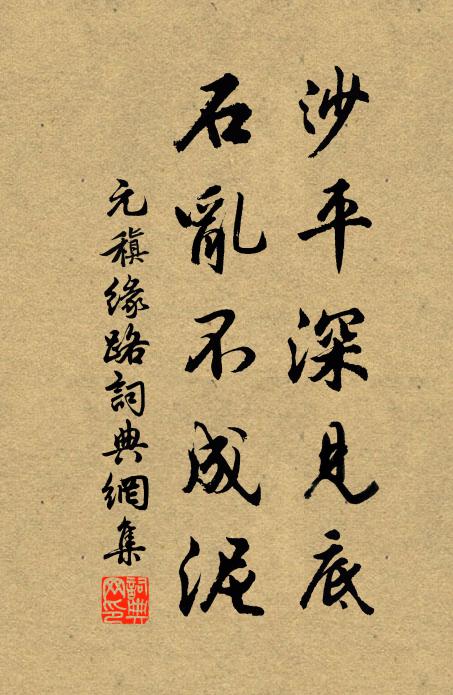 沙平深見底
石亂不成泥
元稹緣路詞典網集
詞典網印